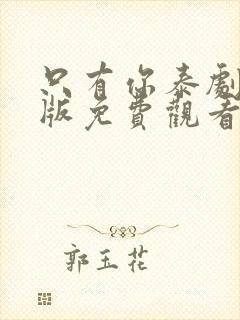 只有你泰劇
版免費觀看
郭玉花